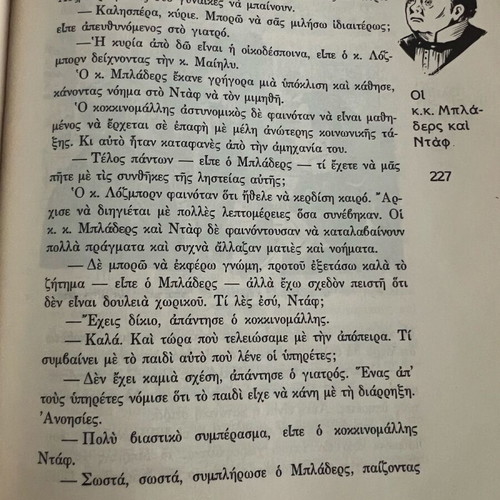 δυο γυναῖκες νὰ μπαίνουν.
— Καλησπέρα, κύριε. Μπορῶ νὰ σᾶς μιλήσω ἰδιαιτέρως;
εἶπε ἀπευθυνόμενος στὸ γιατρό.
—Ἡ κυρία ἀπὸ δῶ εἶναι ἡ οἰκοδέσποινα, εἶπε ὁ κ. Λόζ-
μπορν δείχνοντας τὴν κ. Μαίηλυ.
Ὁ κ. Μπλάδερς ἔκανε γρήγορα μιὰ ὑπόκλιση καὶ κάθησε,
κάνοντας νόημα στὸ Ντὰφ νὰ τὸν μιμηθῆ.
Ὁ κοκκινομάλλης ἀστυνομικὸς δὲ φαινόταν νὰ εἶναι μαθη-
μένος νὰ ἔρχεται σὲ ἐπαφὴ μὲ μέλη ἀνώτερης κοινωνικῆς τά-
ξης. Κι αὐτὸ ἦταν καταφανὲς ἀπὸ τὴν ἀμηχανία του.
— Τέλος πάντων — εἶπε ὁ Μπλάδερς — τί ἔχετε νὰ μᾶς
πῆτε μὲ τὶς συνθῆκες τῆς ληστείας αὐτῆς;
Ὁ κ. Λόζμπορν φαινόταν ὅτι ἤθελε νὰ κερδίση καιρό. Ἄρ-
χισε νὰ διηγιέται μὲ πολλὲς λεπτομέρειες ὅσα συνέβηκαν. Οἱ
κ. κ. Μπλάδερς καὶ Ντὰφ δὲ φαινόντουσαν νὰ καταλαβαίνουν
πολλὰ πράγματα καὶ συχνὰ ἄλλαζαν ματιὲς καὶ νοήματα.
— Δὲ μπορῶ νὰ ἐκφέρω γνώμη, προτοῦ ἐξετάσω καλὰ τὸ
ζήτημα — εἶπε ὁ Μπλάδερς — ἀλλὰ ἔχω σχεδὸν πειστῆ ὅτι
δὲν εἶναι δουλειὰ χωρικοῦ. Τί λὲς ἐσύ, Ντάφ;
—Ἔχεις δίκιο, ἀπάντησε ὁ κοκκινομάλλης.
— Καλά. Καὶ τώρα ποὺ τελειώσαμε μὲ τὴν ἀπόπειρα. Τί
συμβαίνει μὲ τὸ παιδὶ αὐτὸ ποὺ λένε οἱ ὑπηρέτες;
— Δὲν ἔχει καμιὰ σχέση, ἀπάντησε ὁ γιατρός. Ἕνας ἀπ'
τοὺς ὑπηρέτες νόμισε ὅτι τὸ παιδὶ εἶχε νὰ κάνη μὲ τὴ διάρρηξη.
Ἀνοησίες.
— Πολὺ βιαστικὸ συμπέρασμα, εἶπε ὁ κοκκινομάλλης
Ντάφ.
— Σωστά, σωστά, συμπλήρωσε ὁ Μπλάδερς, παίζοντας
Οἱ
κ.κ. Μπλά-
δερς καὶ
Ντὰφ
227